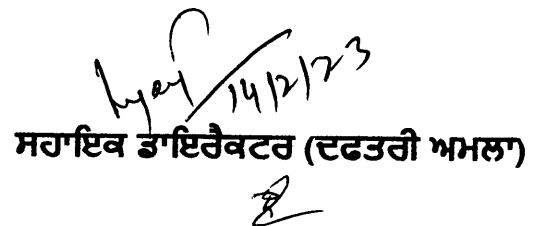 14/2/23
ਸਹਾਇਕ ਡਾਇਰੈਕਟਰ (ਦਫਤਰੀ ਅਮਲਾ)